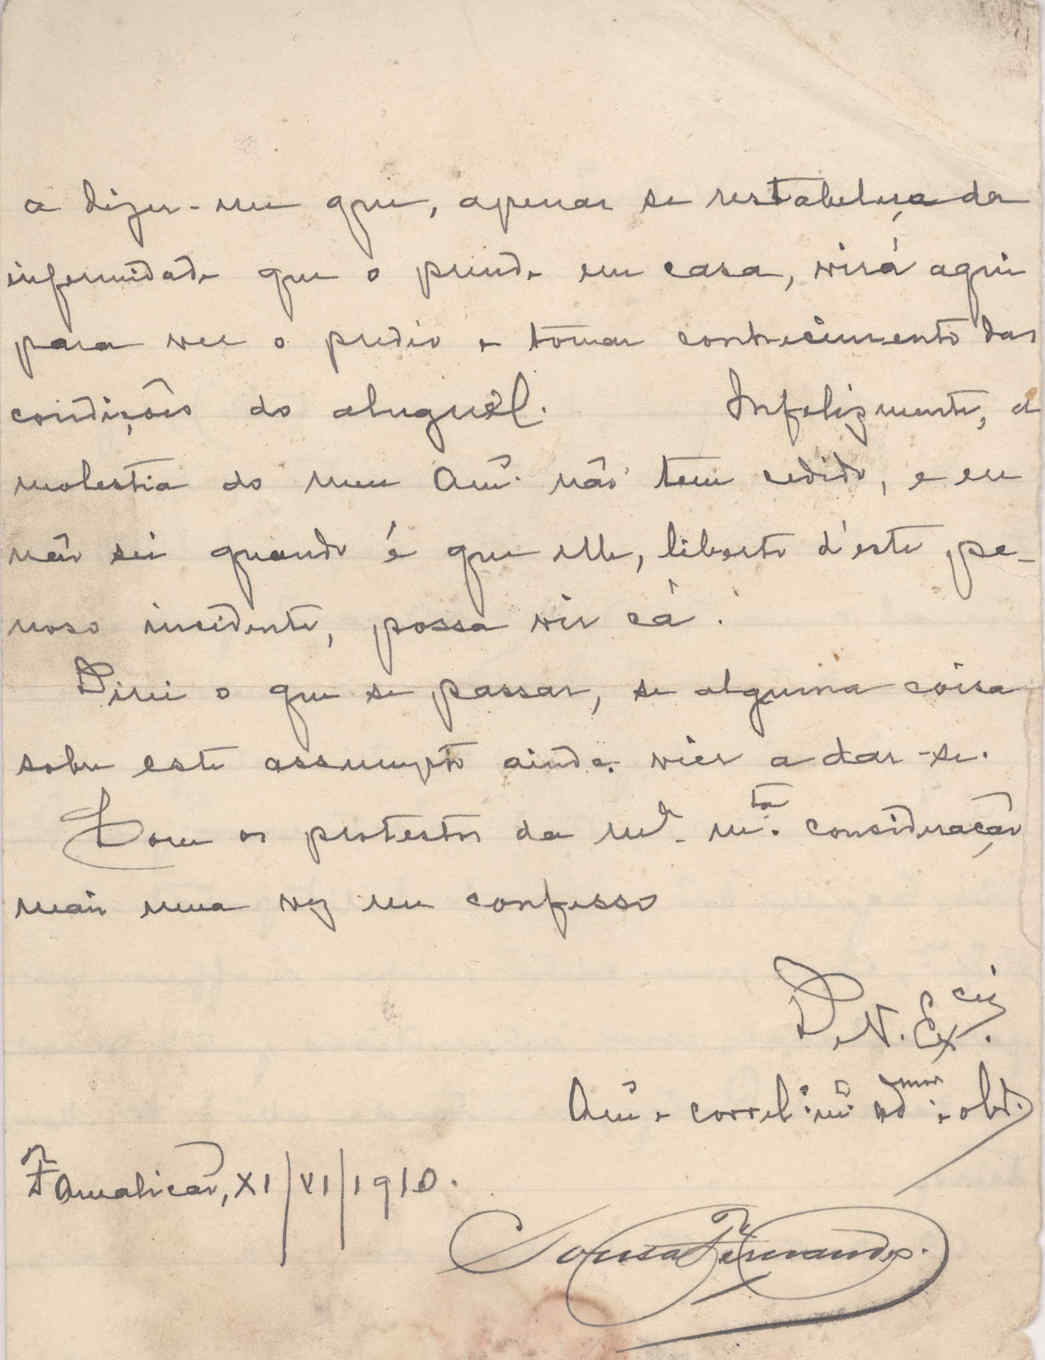 a dizer-me que, apenas se restabeleça da
infermidade que o prende em casa, virá aqui
para ver o predio e tomar conhecimento das
condições do aluguêl. Infelizmente, a
molestia do meu Am.º não tem cedido, e eu
não sei quando é que elle, liberto d'este pe-
noso incidente, possa vir cá.
Direi o que se passar, se alguma coisa
sobre este assumpto ainda vier a dar-se.
Com os protestos da m.ª m.ta consideração
mais uma vez me confesso
De V. Ex.cia
Am.º e correl. m.to ad.mor e obd.
Famalicão, XI/VI/1910.
Sousa Fernandes.